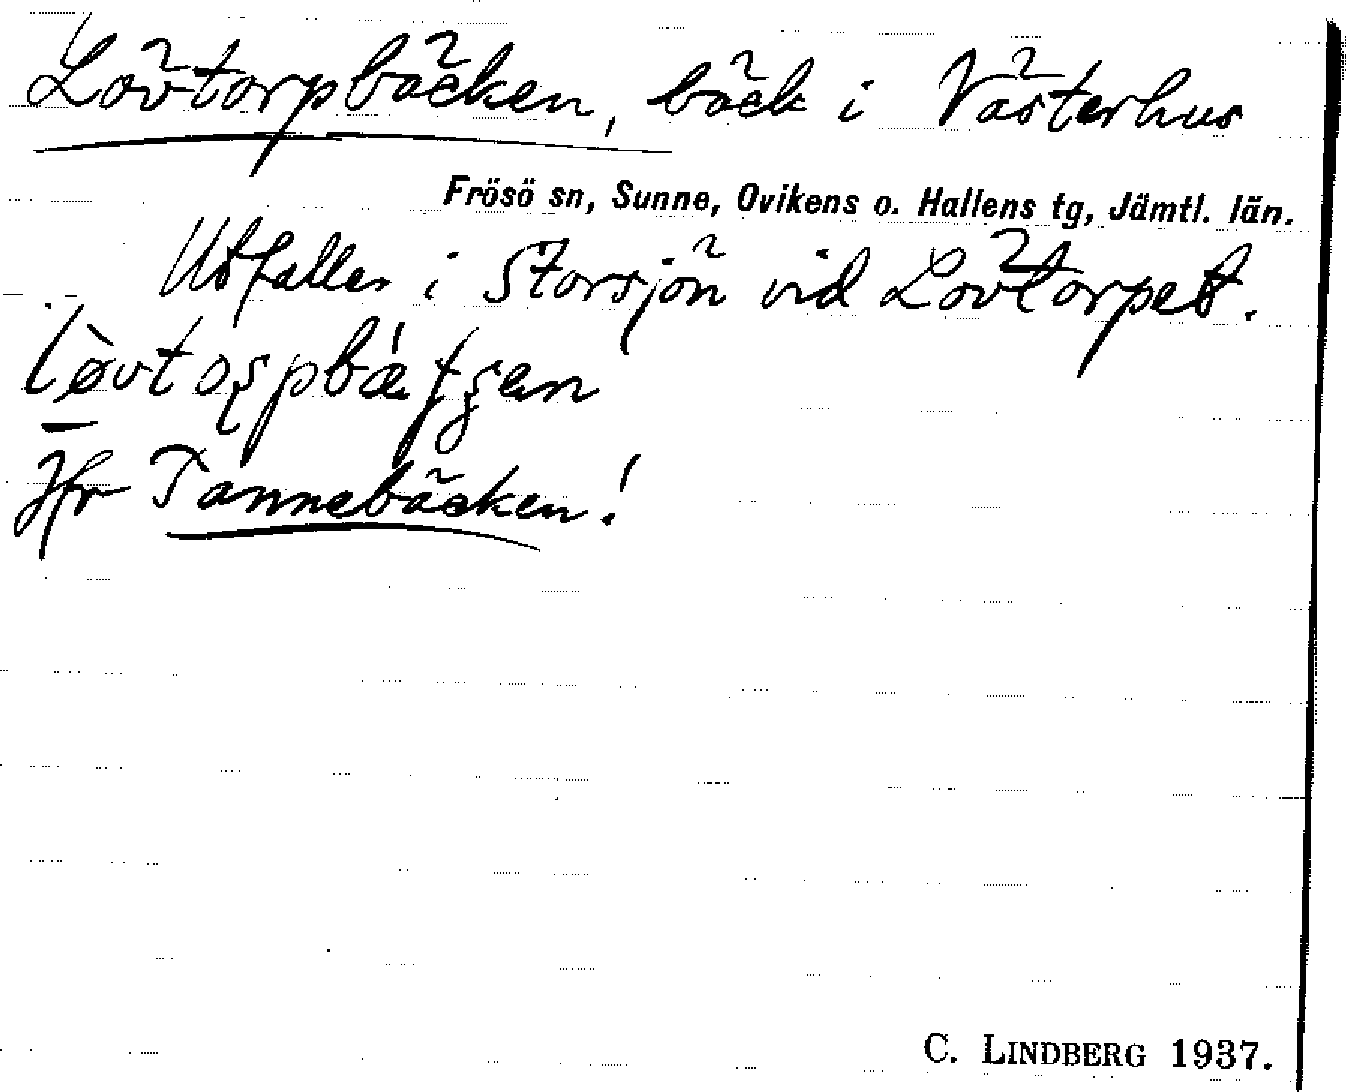 Lövtorpbäcken, bäck i Västerhus
Frösö sn, Sunne, Ovikens o. Hallens tg, Jämtl. län.
Utfaller i Storsjön vid Lövtorpet.
Jfr Tannebäcken!
C. LINDBERG 1937.